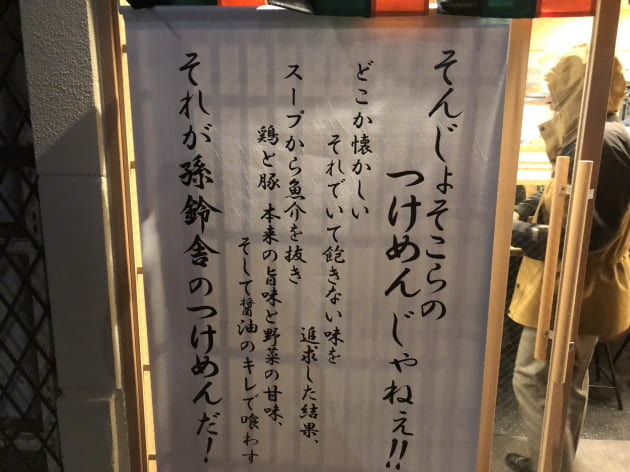 そんじょそこらの
つけめんじゃねぇ!!
どこか懐かしい
それでいて飽きない味を
追求した結果、
スープから魚介を抜き
鶏と豚 本来の旨味と野菜の甘味、
そして醤油のキレで喰わす
それが孫鈴舎のつけめんだ!